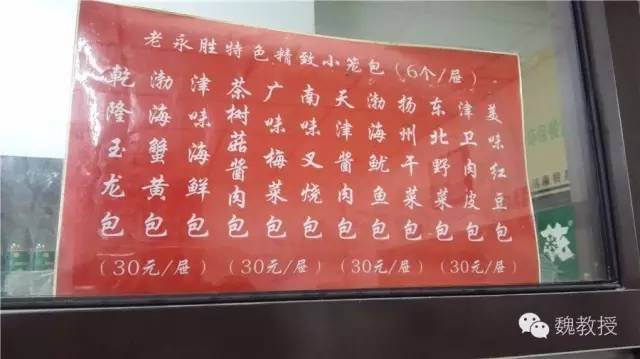 老永胜特色精致小笼包(6个/屉)
乾隆玉龙包
渤海蟹黄包
津味海鲜包
茶树菇酱肉包
广味梅菜包
南味叉烧包
天津酱肉包
渤海鱿鱼包
扬州干菜包
东北野菜包
津卫肉皮包
美味红豆包
(30元/屉)(30元/屉)(30元/屉)(30元/屉)
魏教授